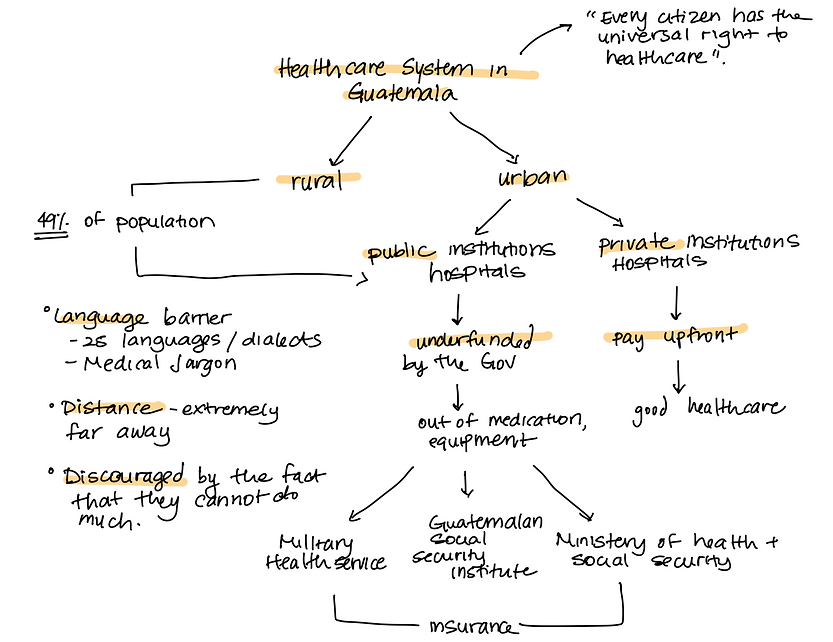 "Every citizen has the
universal right to
healthcare".
Healthcare System in
Guatemala
rural
urban
49% of population
public institutions
hospitals
private institutions
Hospitals
• Language barrier
- 25 languages / dialects
- Medical Jargon
• Distance - extremely
far away
• Discouraged by the fact
that they cannot do
much.
underfunded
by the Gov
out of medication,
equipment
pay upfront
good healthcare
Military
Health service
Guatemalan
social
security
institute
Ministery of health +
social security
insurance